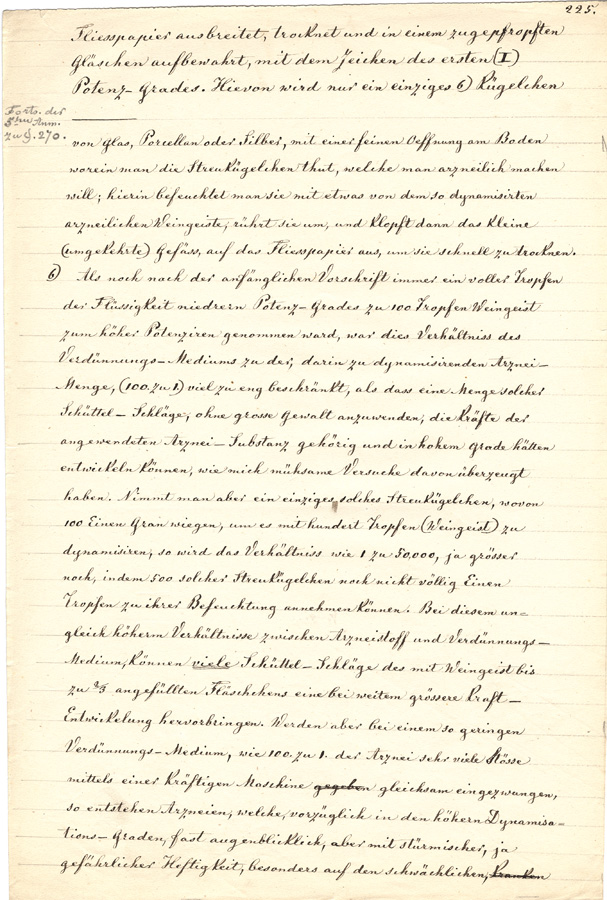 225.
Fliesspapier ausbreitet, trocknet und in einem zugepfropften
Gläschen aufbewahrt, mit dem Zeichen des ersten (I)
Potenz-Grades. Hievon wird nur ein einziges 6) Kügelchen
Forts. der
5ten Anm.
zu §. 270.
von Glas, Porcellan oder Silber, mit einer feinen Oeffnung am Boden
worein man die Streukügelchen thut, welche man arzneilich machen
will; hierin befeuchtet man sie mit etwas von dem so dynamisirten
arzneilichen Weingeiste, rührt sie um, und klopft dann das kleine
(umgekehrte) Gefäss, auf das Fliesspapier aus, um sie schnell zu trocknen.
6) Als noch nach der anfänglichen Vorschrift immer ein voller Tropfen
der Flüssigkeit niedrern Potenz-Grades zu 100 Tropfen Weingeist
zum höher Potenziren genommen ward, war dies Verhältniss des
Verdünnungs-Mediums zu der, darin zu dynamisirenden Arznei-
Menge, (100. zu 1) viel zu eng beschränkt, als dass eine Menge solcher
Schüttel-Schläge, ohne grosse Gewalt anzuwenden, die Kräfte der
angewendeten Arznei-Substanz gehörig und in hohem Grade hätten
entwickeln können, wie mich mühsame Versuche davon überzeugt
haben. Nimmt man aber ein einziges solches Streukügelchen, wovon
100 Einen Gran wiegen, um es mit hundert Tropfen (Weingeist) zu
dynamisiren, so wird das Verhältniss wie 1 zu 50,000, ja grösser
noch, indem 500 solcher Streukügelchen noch nicht völlig Einen
Tropfen zu ihrer Befeuchtung annehmen können. Bei diesem un-
gleich höherm Verhältnisse zwischen Arzneistoff und Verdünnungs-
Medium, können viele Schüttel-Schläge des mit Weingeist bis
zu 2/3 angefüllten Fläschchens eine bei weitem grössere Kraft-
Entwickelung hervorbringen. Werden aber bei einem so geringen
Verdünnungs-Medium, wie 100. zu 1. der Arznei sehr viele Stösse
mittels einer kräftigen Maschine gegeben gleichsam eingezwungen,
so entstehen Arzneien, welche, vorzüglich in den höhern Dynamisa-
tions-Graden, fast augenblicklich, aber mit stürmischer, ja
gefährlicher Heftigkeit, besonders auf den schwächlichen, Kranken